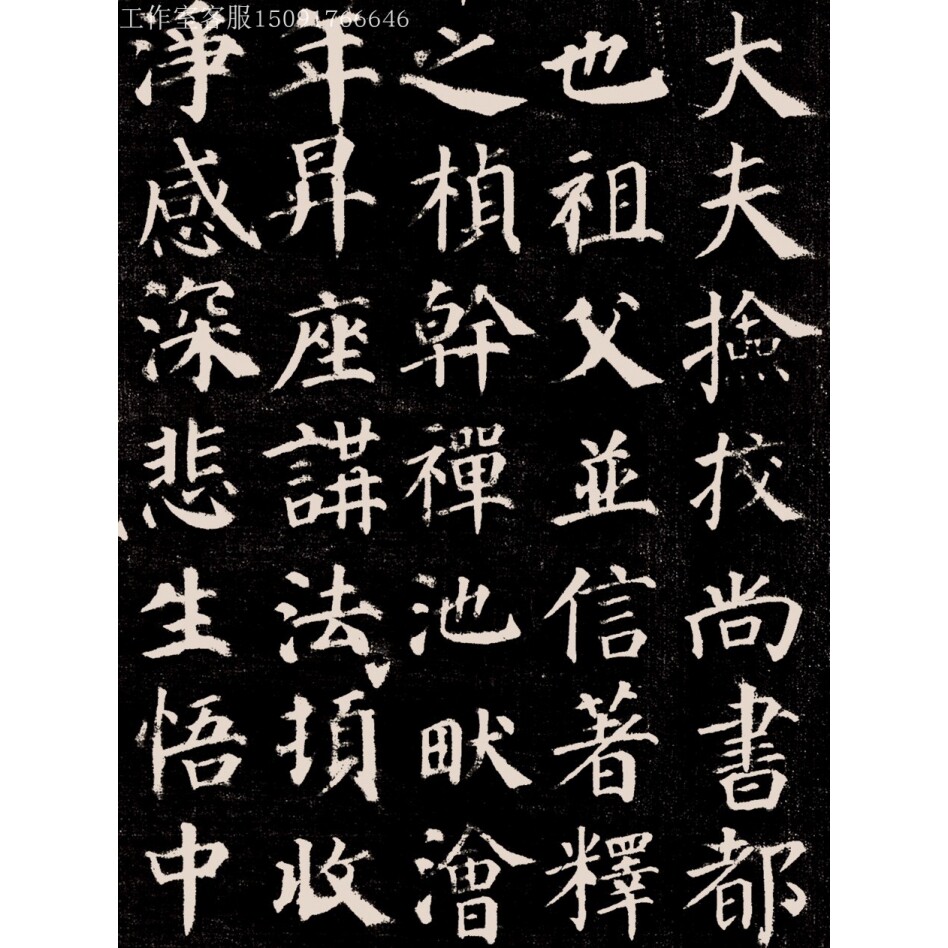 工作室客服15091766646
大夫撿挍尚書都
也祖父並信著釋
之楨幹禪池畎澮
年昇座講法頂收
淨感深悲生悟中